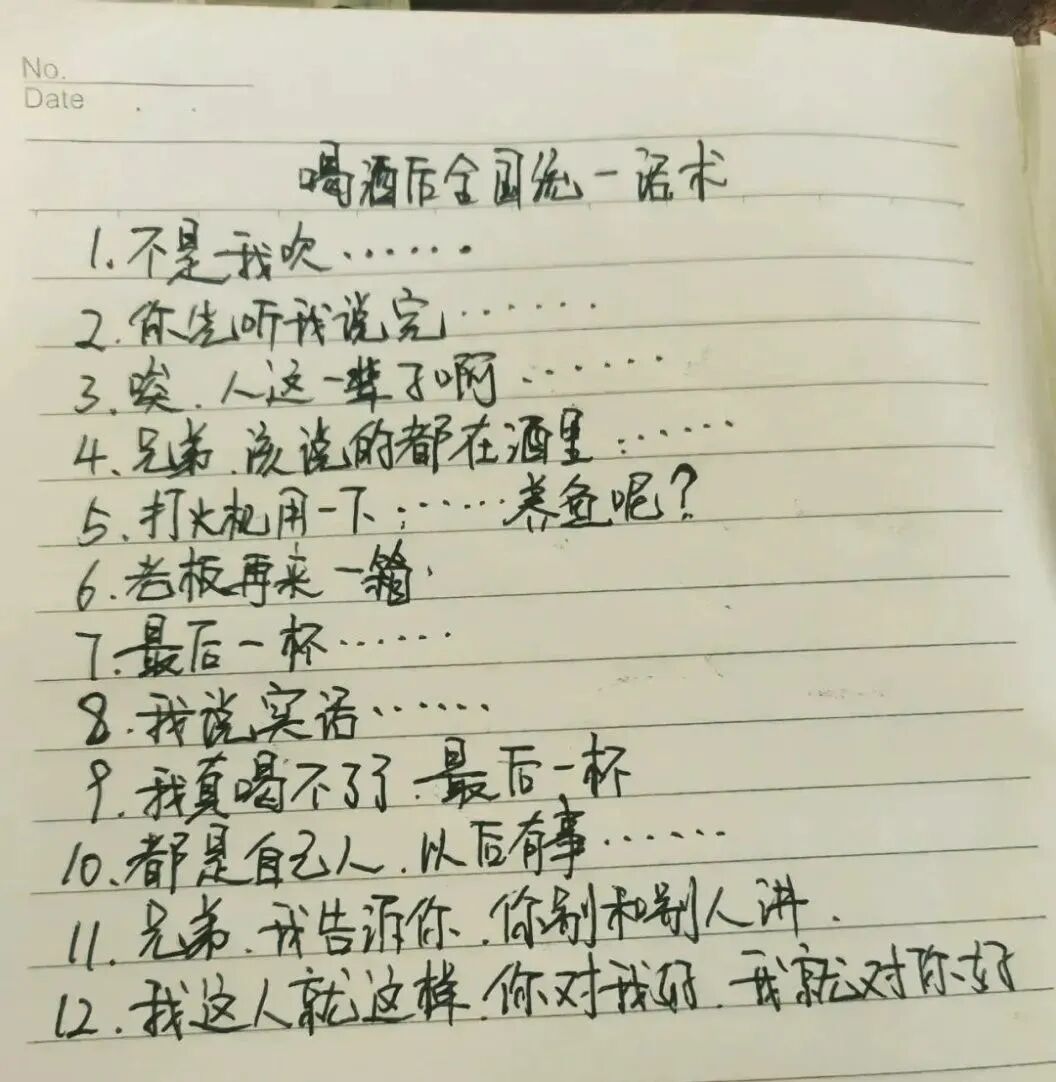 No.
Date
喝酒后全国统一话术
1.不是我吹……
2.你先听我说完……
3.唉、人这一辈子啊……
4、兄弟、该说的都在酒里……
5、打火机用一下……养鱼呢?
6.老板再来一箱.
7.最后一杯……
8.我说实话……
9.我真喝不了了、最后一杯
10、都是自己人、以后有事……
11.兄弟、我告诉你、你别和别人讲.
12.我这人就这样、你对我好、我就对你好